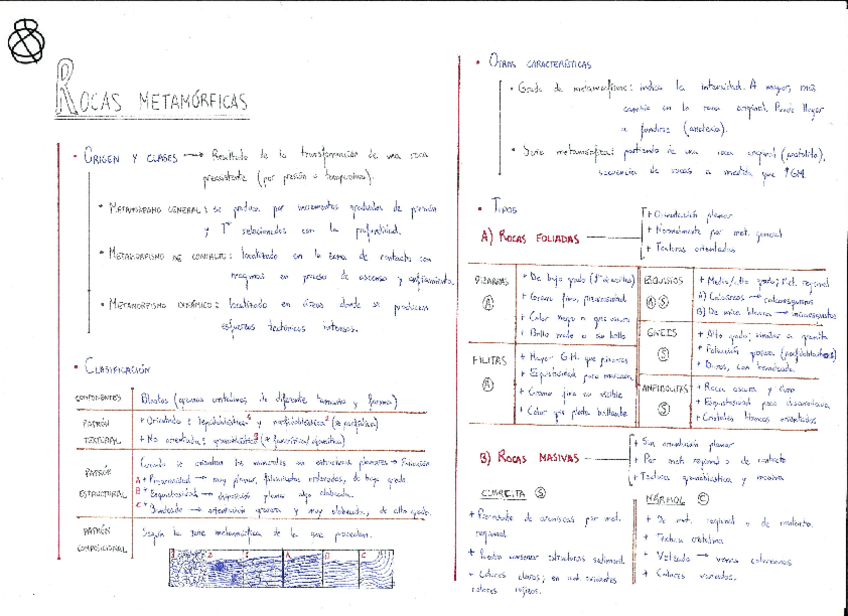 ROCAS METAMÓRFICAS
• ORIGEN Y CLASES → Resultado de la transformación de una roca
preexistente (por presión o temperatura).
• METAMORFISMO GENERAL: se produce por incrementos graduales de presión
y Tª relacionados con la profundidad.
• METAMORFISMO DE CONTACTO: localizado en la zona de contacto con
magmas en proceso de ascenso y enfriamiento.
• METAMORFISMO DINÁMICO: localizado en áreas donde se producen
esfuerzos tectónicos intensos.
• CLASIFICACIÓN
COMPONENTES
Blastos (granos cristalinos de diferente tamaño y forma)
PATRÓN
TEXTURAL
+ Orientados: lepidoblástica y nematoblástica
+ No orientados: granoblástica
PATRÓN
ESTRUCTURAL
Cuando se orientan los minerales en estructuras planares → Foliación
A + Pizarrosidad → muy planar, filamentos ordenados, de bajo grado
B + Esquistosidad → disposición planar algo
C + Bandeado → orientación grosera y muy de alto grado.
PATRÓN
COMPOSICIONAL
Según la serie metamórfica de la que procedan.
• OTRAS CARACTERÍSTICAS
• Grado de metamorfismo: indica la intensidad. A mayor, más
cambia en la roca original. Puede llegar
a fundirse (anatexia).
• Serie metamórfica: partiendo de una roca original (protolito),
secuencia de rocas a medida que ↑GM.
• TIPOS
A) ROCAS FOLIADAS
+ Orientación planar
+ Normalmente por met. general
+ Texturas orientadas
PIZARRAS
A
+ De bajo grado
+ Grano fino, pizarrosidad
+ Color negro o gris oscuro
+ Brillo mate o sin brillo
ESQUISTOS
B S
+ Medio/alto grado; M. regional
A) Calcáreos → calcoesquistos
B) De mica blanca → micaesquistos
FILITAS
A
+ Mayor G.M. que pizarras
+ Esquistosidad
+ Grano fino no visible
+ Color gris plata brillante
GNEIS
S
+ Alto grado; similar a granito
+ Foliación grosera
+ Duros, con bandeado
ANFIBOLITAS
S
+ Roca oscura y dura
+ Esquistosidad poco desarrollada
+ Cristales blancos orientados
B) ROCAS MASIVAS
+ Sin orientación planar
+ Por met. regional o de contacto
+ Textura granoblástica y masiva
CUARCITA S
+ Proviene de areniscas por met.
regional.
+ Puede conservar estructuras sediment.
+ Colores claros; en
colores rojizos.
MÁRMOL C
+ De met. regional o de contacto.
+ Textura cristalina
+ Veteado → venas
+ Colores variados.